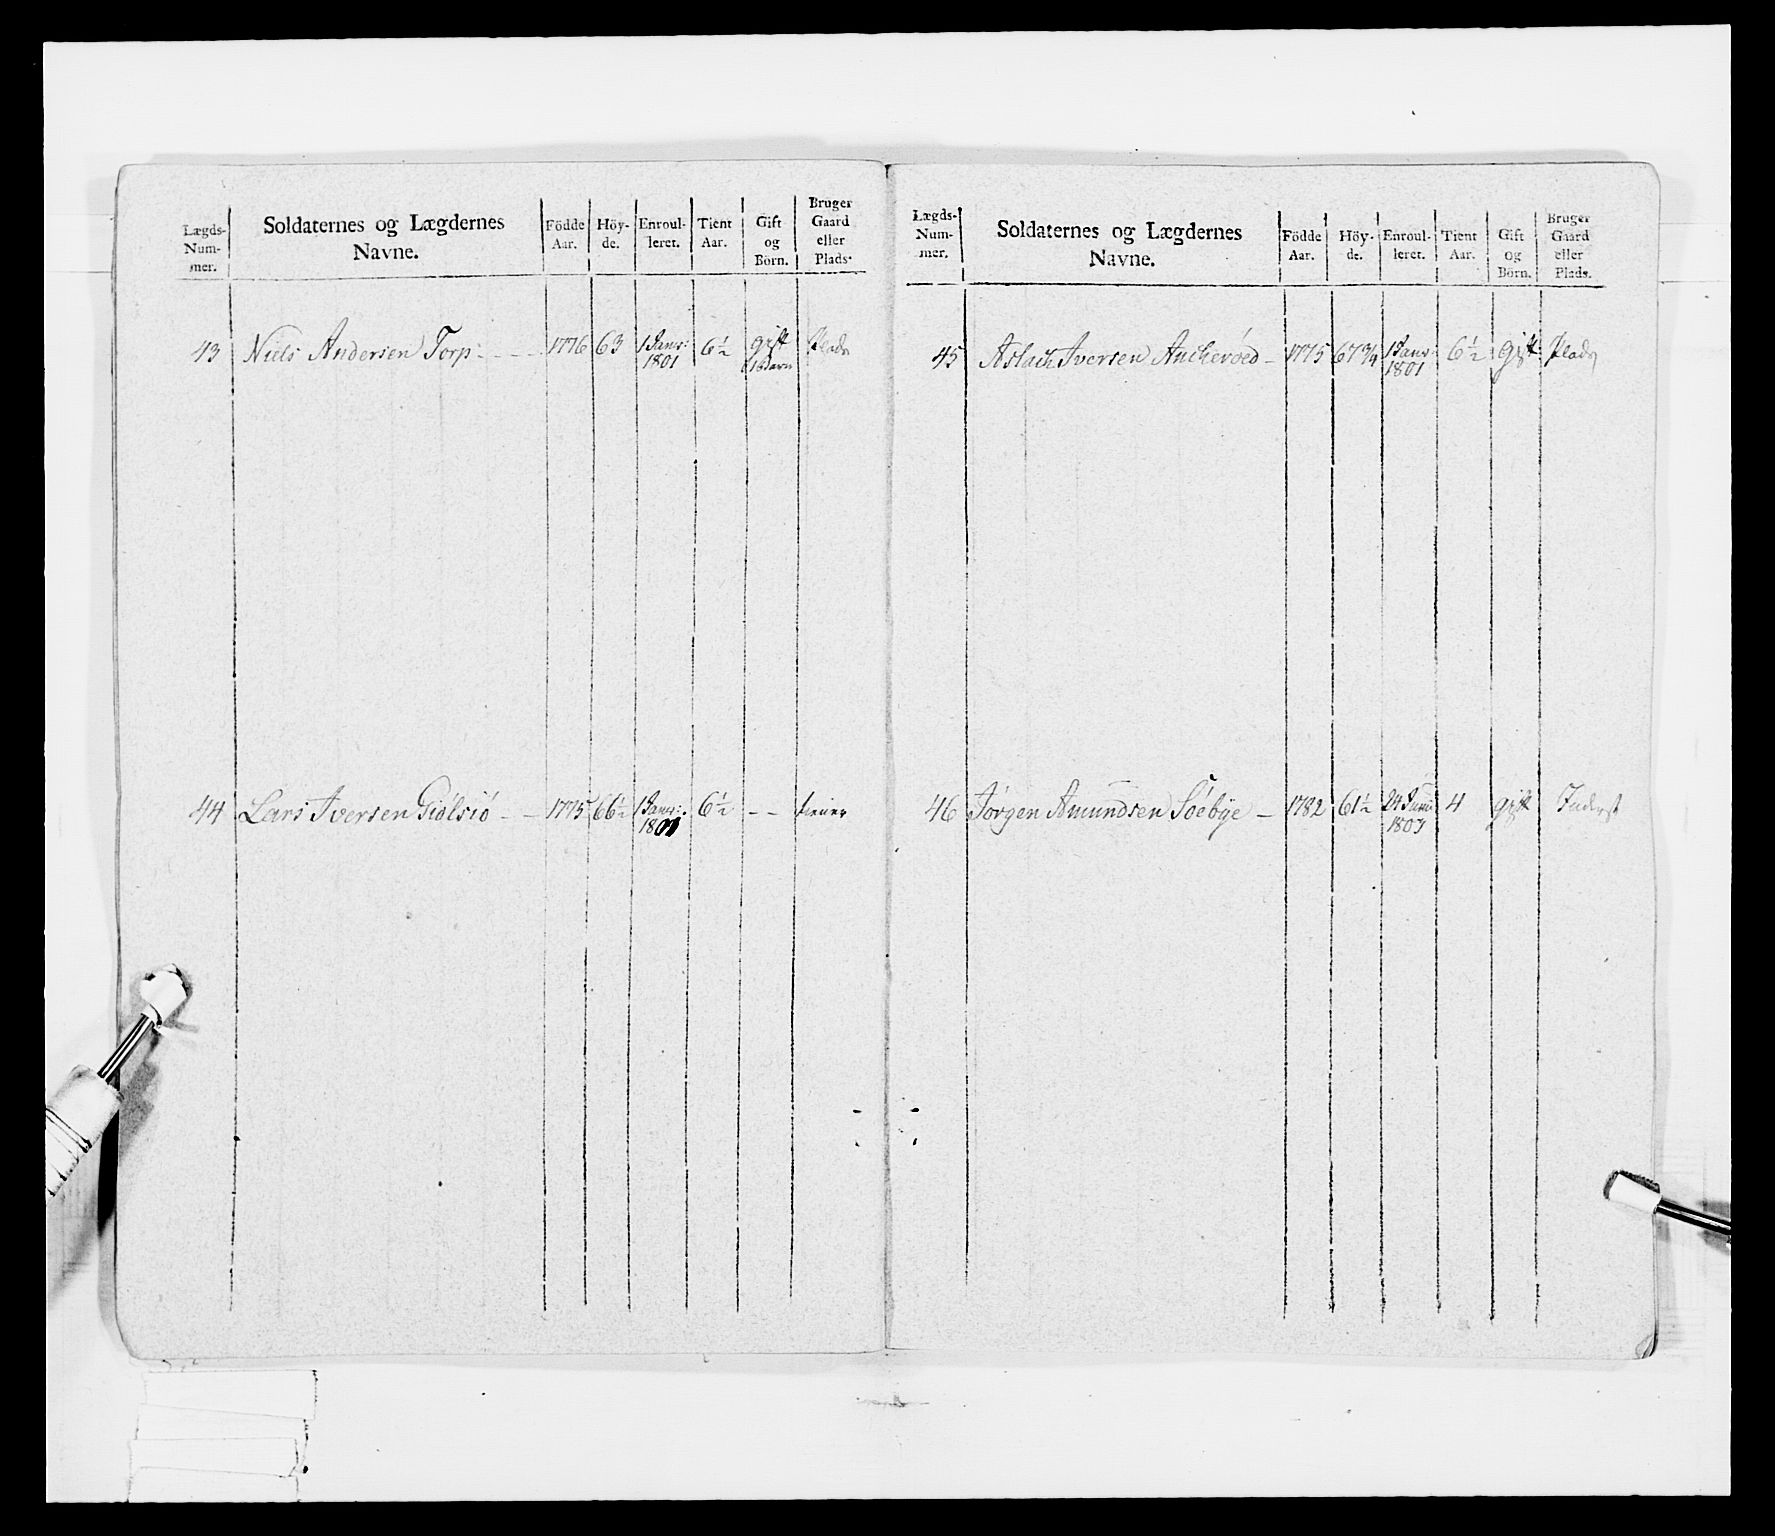 Lægds-Num-mer. Soldaternes og Lægdernes Navne. Födde Aar. Höy-de. Enroul-leret. Tient Aar. Gift og Börn. Bruger Gaard eller Plads.
43 Niels Andersen Torp: - - - 1776 63 1 Janv: 1801 6½ gift 1 Barn Plads
44 Lars Iversen Giölsiö - - 1775 66½ 1 Janv: 1801 6½ - - tiener
Lægds-Num-mer. Soldaternes og Lægdernes Navne. Födde Aar. Höy-de. Enroul-leret. Tient Aar. Gift og Börn. Bruger Gaard eller Plads.
45 Aslach Iversen Ancheröed - 1775 67¾ 1 Janv: 1801 6½ gift Plads
46 Jörgen Amundsen Söebye - 1782 61½ 24 Juni 1803 4 gift Inderst